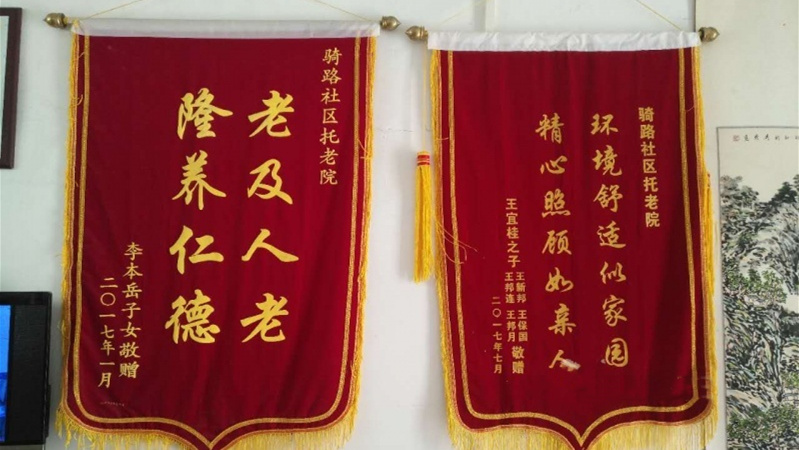 骑路社区托老院
老及人老
隆养仁德
李本岳子女敬赠
二〇一七年一月
骑路社区托老院
环境舒适似家园
精心照顾如亲人
王宜桂之子
王新邦 王保国
王邦连 王邦月
敬赠
二〇一七年七月